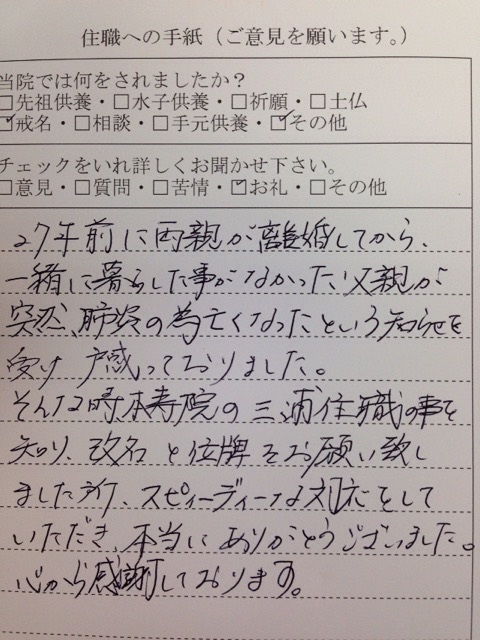 住職への手紙（ご意見を願います。）
当院では何をされましたか？
□先祖供養・□水子供養・□祈願・□土仏
☑戒名・□相談・□手元供養・☑その他
チェックをいれ詳しくお聞かせ下さい。
□意見・□質問・□苦情・☑お礼・□その他
27年前に両親が離婚してから、
一緒に暮らした事がなかった父親が
突然、肺炎の為亡くなったという知らせを
受け 戸惑っておりました。
そんな時本寿院の三浦住職の事を
知り、改名と位牌をお願い致し
ました所、スピィーディーな対応をして
いただき、本当にありがとうございました。
心から感謝しております。